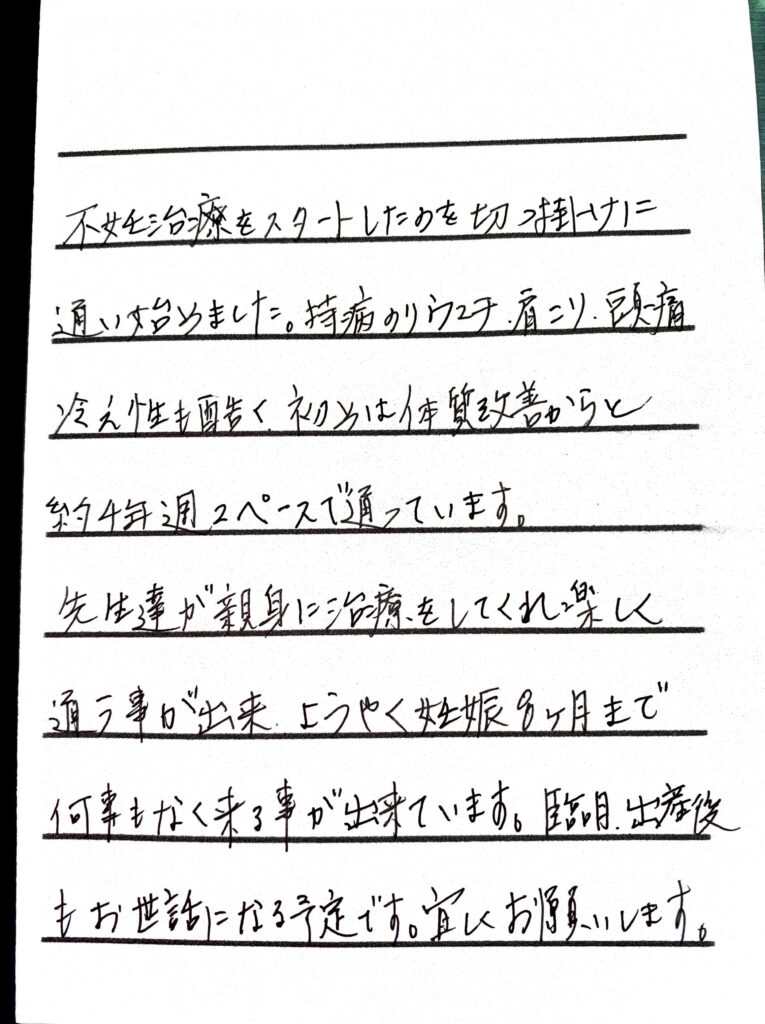 不妊治療をスタートしたのを切っ掛けに
通い始めました。持病のリウマチ、肩こり、頭痛
冷え性も酷く、初めは体質改善からと
約4年週2ペースで通っています。
先生達が親身に治療をしてくれ楽しく
通う事が出来、ようやく妊娠8ヶ月まで
何事もなく来る事が出来ています。臨月、出産後
もお世話になる予定です。宜しくお願いします。